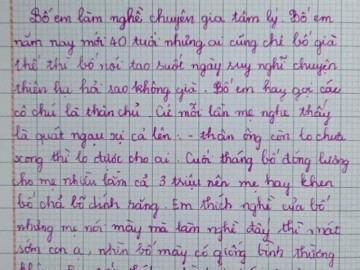 Bố em làm nghề chuyên gia tâm lý. Bố em
năm nay mới 40 tuổi nhưng ai cũng chê bố già
thế thì bố nói tao suốt ngày suy nghĩ chuyện
thiên hạ hải sao không già. Bố em hay gọi các
cô chú là thân chủ. Cứ mỗi lần mẹ nghe thấy
là quát ngậu xị cả lên: - thân ông còn lo chưa
xong thì lo được cho ai. Cuối tháng bố đóng lương
cho mẹ nhiều lắm cả 3 triệu nên mẹ hay khen
bố chả bõ dính răng. Em thích nghề của bố
nhưng mẹ nói mày mà làm nghề đấy thì nát
sớm con ạ, nhìn bố mày có giống bình thường